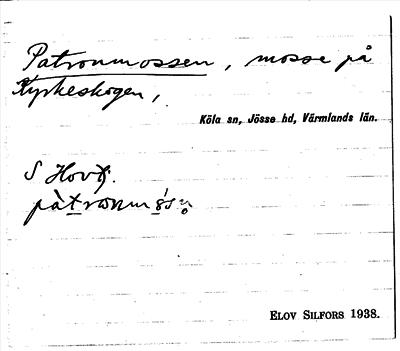 Patronmossen, mosse på
Kyrkeskogen,
Köla sn, Jösse hd, Värmlands län.
S Hovg.
ELOV SILFORS 1938.